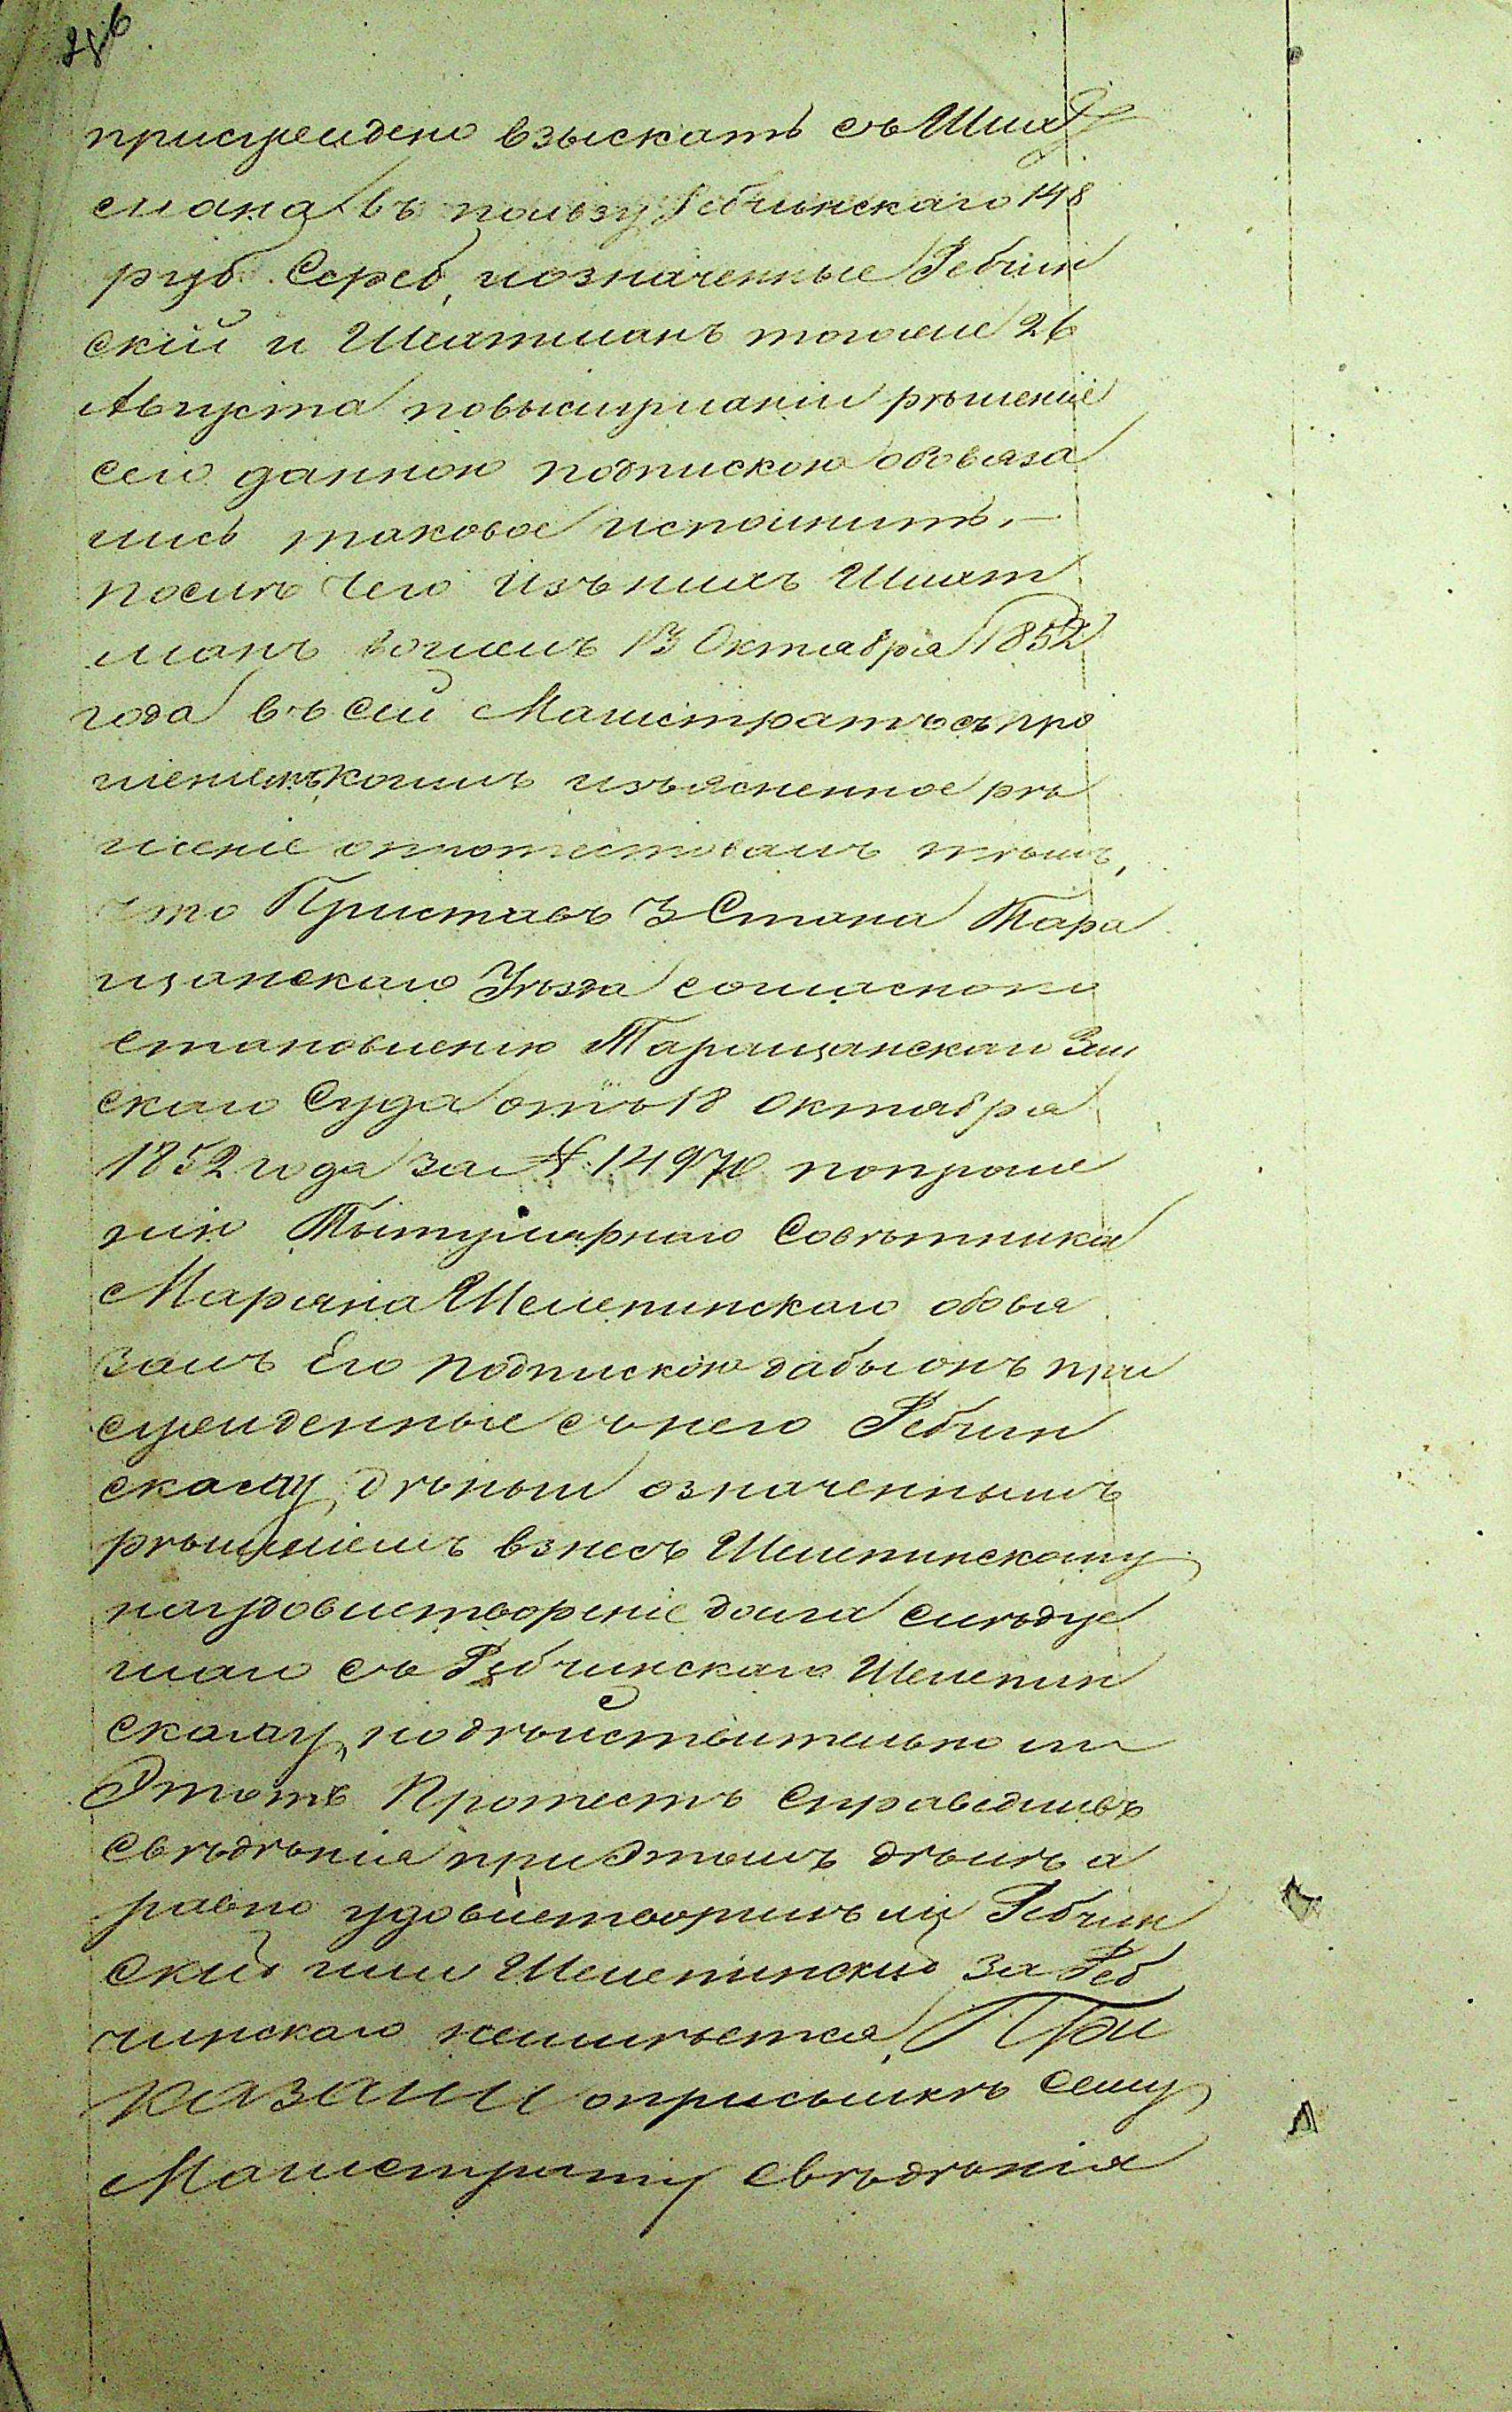 присуждено взыскать съ Шмат
мана въ пользу Ребчинскаго 148
руб. Сереб, иозначенные Ребчин
скій и Шматманъ тогоже 26
Августа повыслушаніи рѣшеніе
сего данною подпискою обовяза
лись таковое исполнить. —
послѣ чего изънихъ Шмат
манъ вошелъ 13 Октября 1852
года въ сей Магистратъ съ про
шеніемъ коимъ изъясненное рѣ
шеніе опротестовалъ тѣмъ,
что Приставъ 3 Стана Тара
щанскаго Уѣзда согласно по
становленію Таращанскаго Зем
скаго Суда отъ 18 Октября
1852 года за № 14970 попроше
нію Тытулярнаго Совѣтника
Марьяна Шелепинскаго обовя
залъ Его подпискою дабы онъ при
сужденные сънего Ребчин
скому дѣньги означеннымъ
рѣшеніемъ взнесъ Шелепинскому
наудовлетвореніе долга слѣдуе
маго съ Ребчинскаго Шелепин
скому, но дѣйствительно ли
Этотъ Протестъ справедливъ
свѣдѣнія при Этомъ дѣлѣ а
равно удовлетворилъ ли Ребчин
скій или Шелепинскій за Реб
чинскаго неимѣется, При
казали оприсылкѣ сему
Магистрату свѣдѣнія